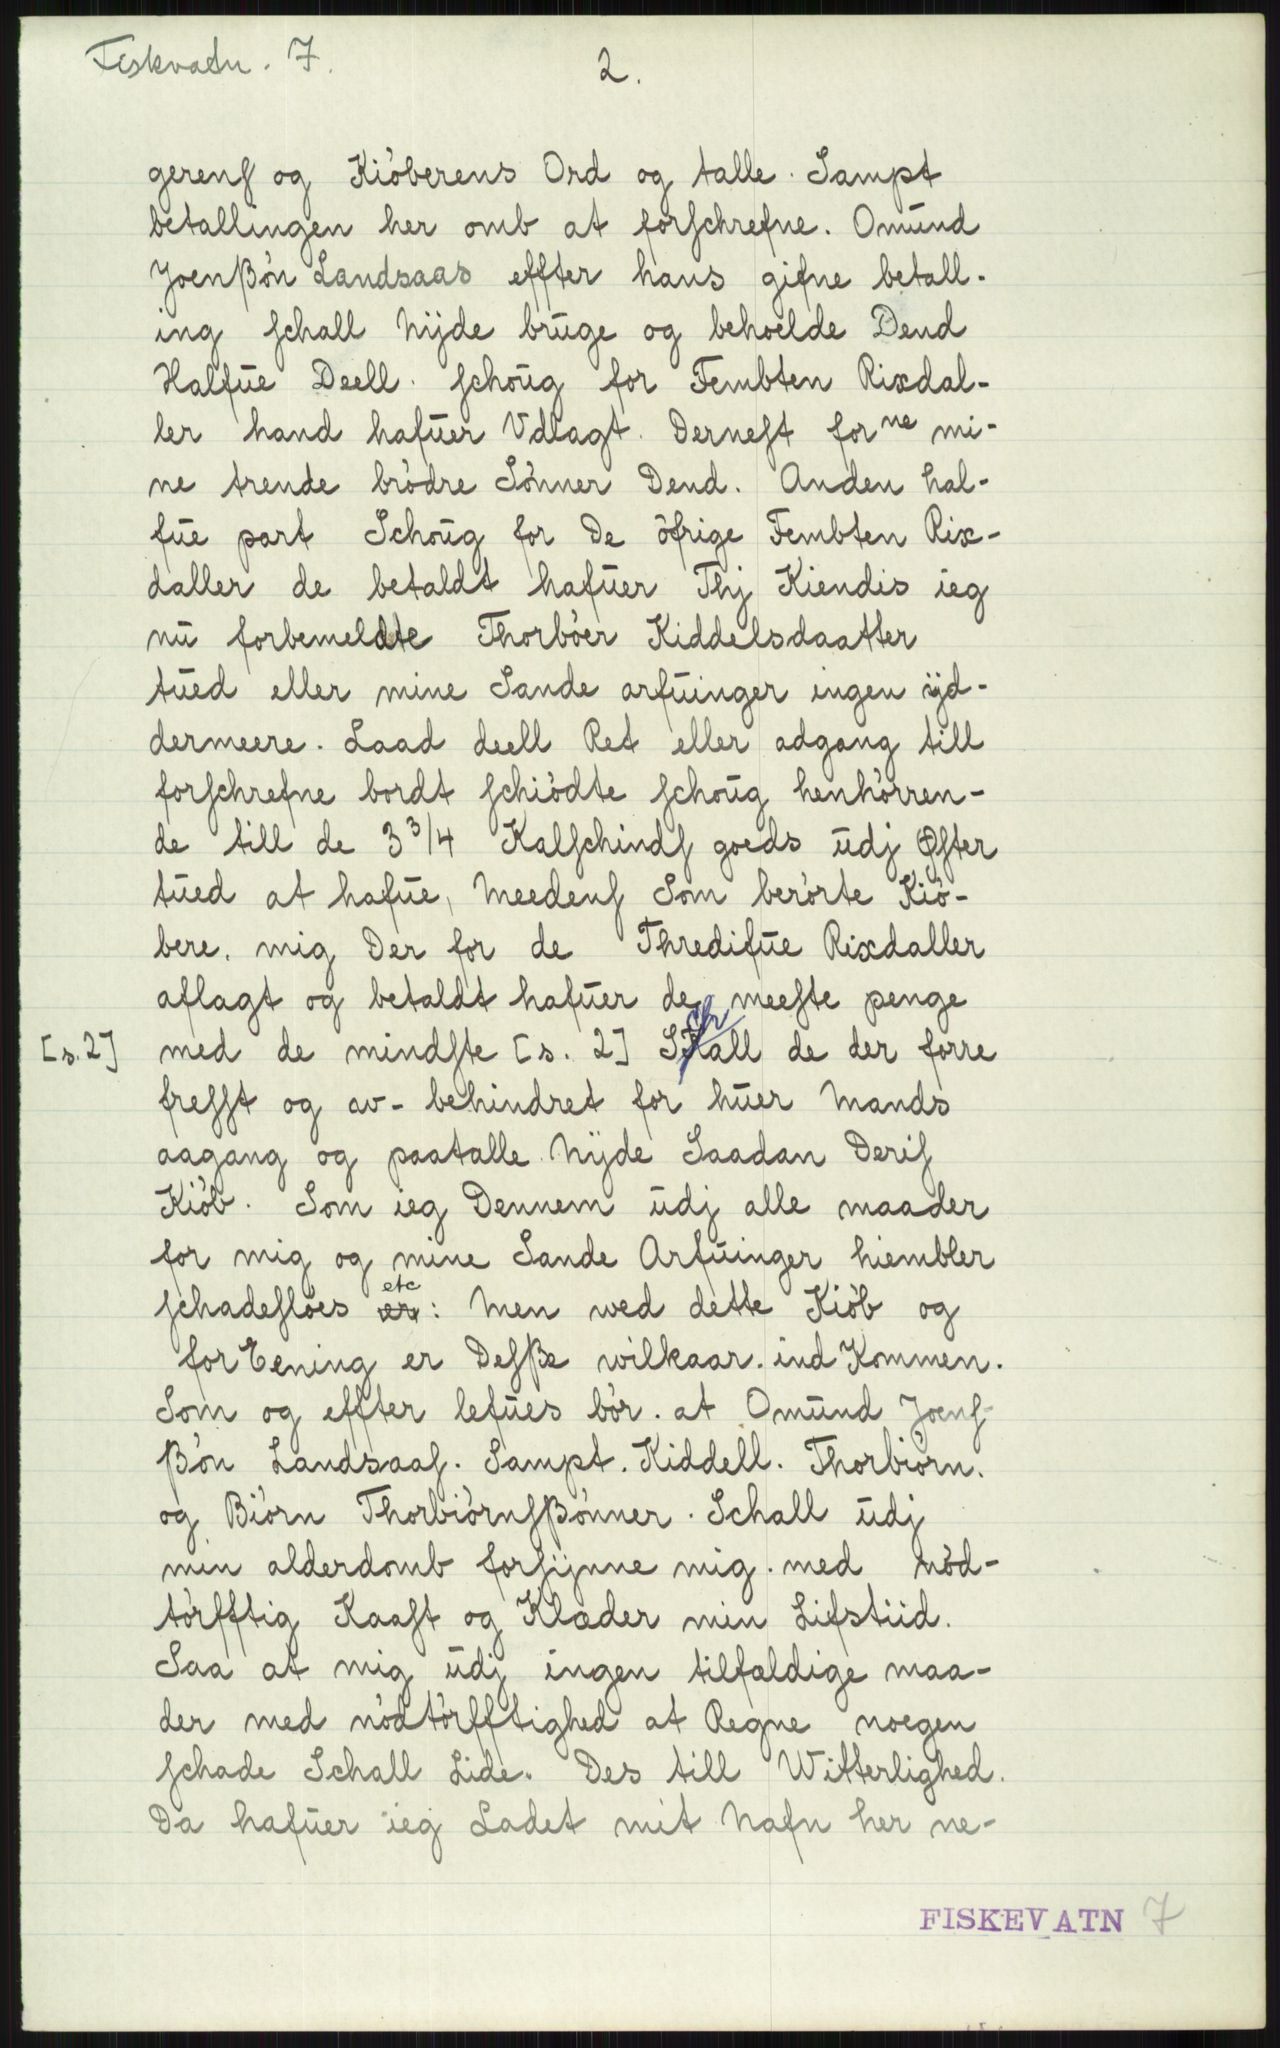 Fiskvatn. 7.
2.
gerenſ og Kiöberens Ord og talle. Sampt
betallingen her omb at forſchrefne. Omund
Joenßön Landsaas effter hans gifne betall-
ing ſchall Nÿde bruge og behoelde Dend
Halfue Deell. ſchoug for Fembten Rixdal-
ler hand hafuer Vdlagt. Derneſt forne mi-
ne trende brödre Sönner Dend. Anden hal-
fue part Schoug for De öfrige Fembten Rix-
daller de betaldt hafuer Thj Kiendis ieg
nu forbemeldte Thorböer Kiddelsdaatter
tued eller mine Sande arfuinger ingen ÿd-
dermeere. Laad deell Ret eller adgang till
forſchrefne bordt ſchiödte ſchoug henhörren-
de till de 3 3/4 Kalſchindſ goeds udj Øſter
tued at hafue, Meedenſ Som berörte Kiö-
bere. mig Der for de Thredifue Rixdaller
aflagt og betaldt hafuer de meeſte penge
[s. 2] med de mindſte [s. 2] Schall de der forre
freſſt og av- behindret for huer Mands
aagang og paatalle Nÿde Saadan Deriſ
Kiöb. Som ieg Dennem udj alle maader
for mig og mine Sande Arfuinger hiembler
ſchadeſlöes er etc: Men wed dette Kiöb og
forEening er Deſße wilkaar. ind Kommen.
Som og effter lefues bör. at Omund Joenſ-
ßön Landsaaſ. Sampt. Kiddell. Thorbiörn.
og Biörn Thorbiörnſßönner. Schall udj
min alderdomb forſÿnne mig. med nöd-
törfftig Kaaſt og Klæder min Lifstiid.
Saa at mig udj ingen tilfældige maa-
der med nödtörfftighed at Regne noegen
ſchade Schall Lide. Des till Witterlighed.
Da hafuer ieg Ladet mit Nafn her ne-
FISKEVATN 7